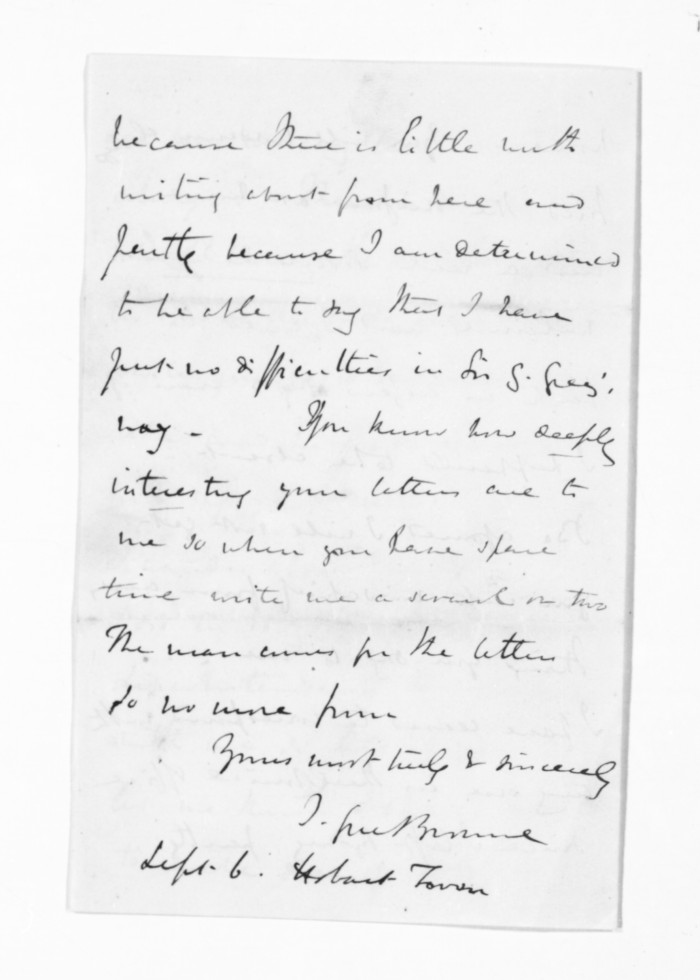 because there is little worth
writing about from here and
partly because I am determined
to be able to say that I have
put no difficulties in Sir G. Grey's
way - You know how deeply
interesting your letters are to
me so when you have spare
time write me a scrawl or two
The man comes for the letters
So no more from
Yours most truly & sincerely
T. Gore Browne
Sept 6. Hobart Town